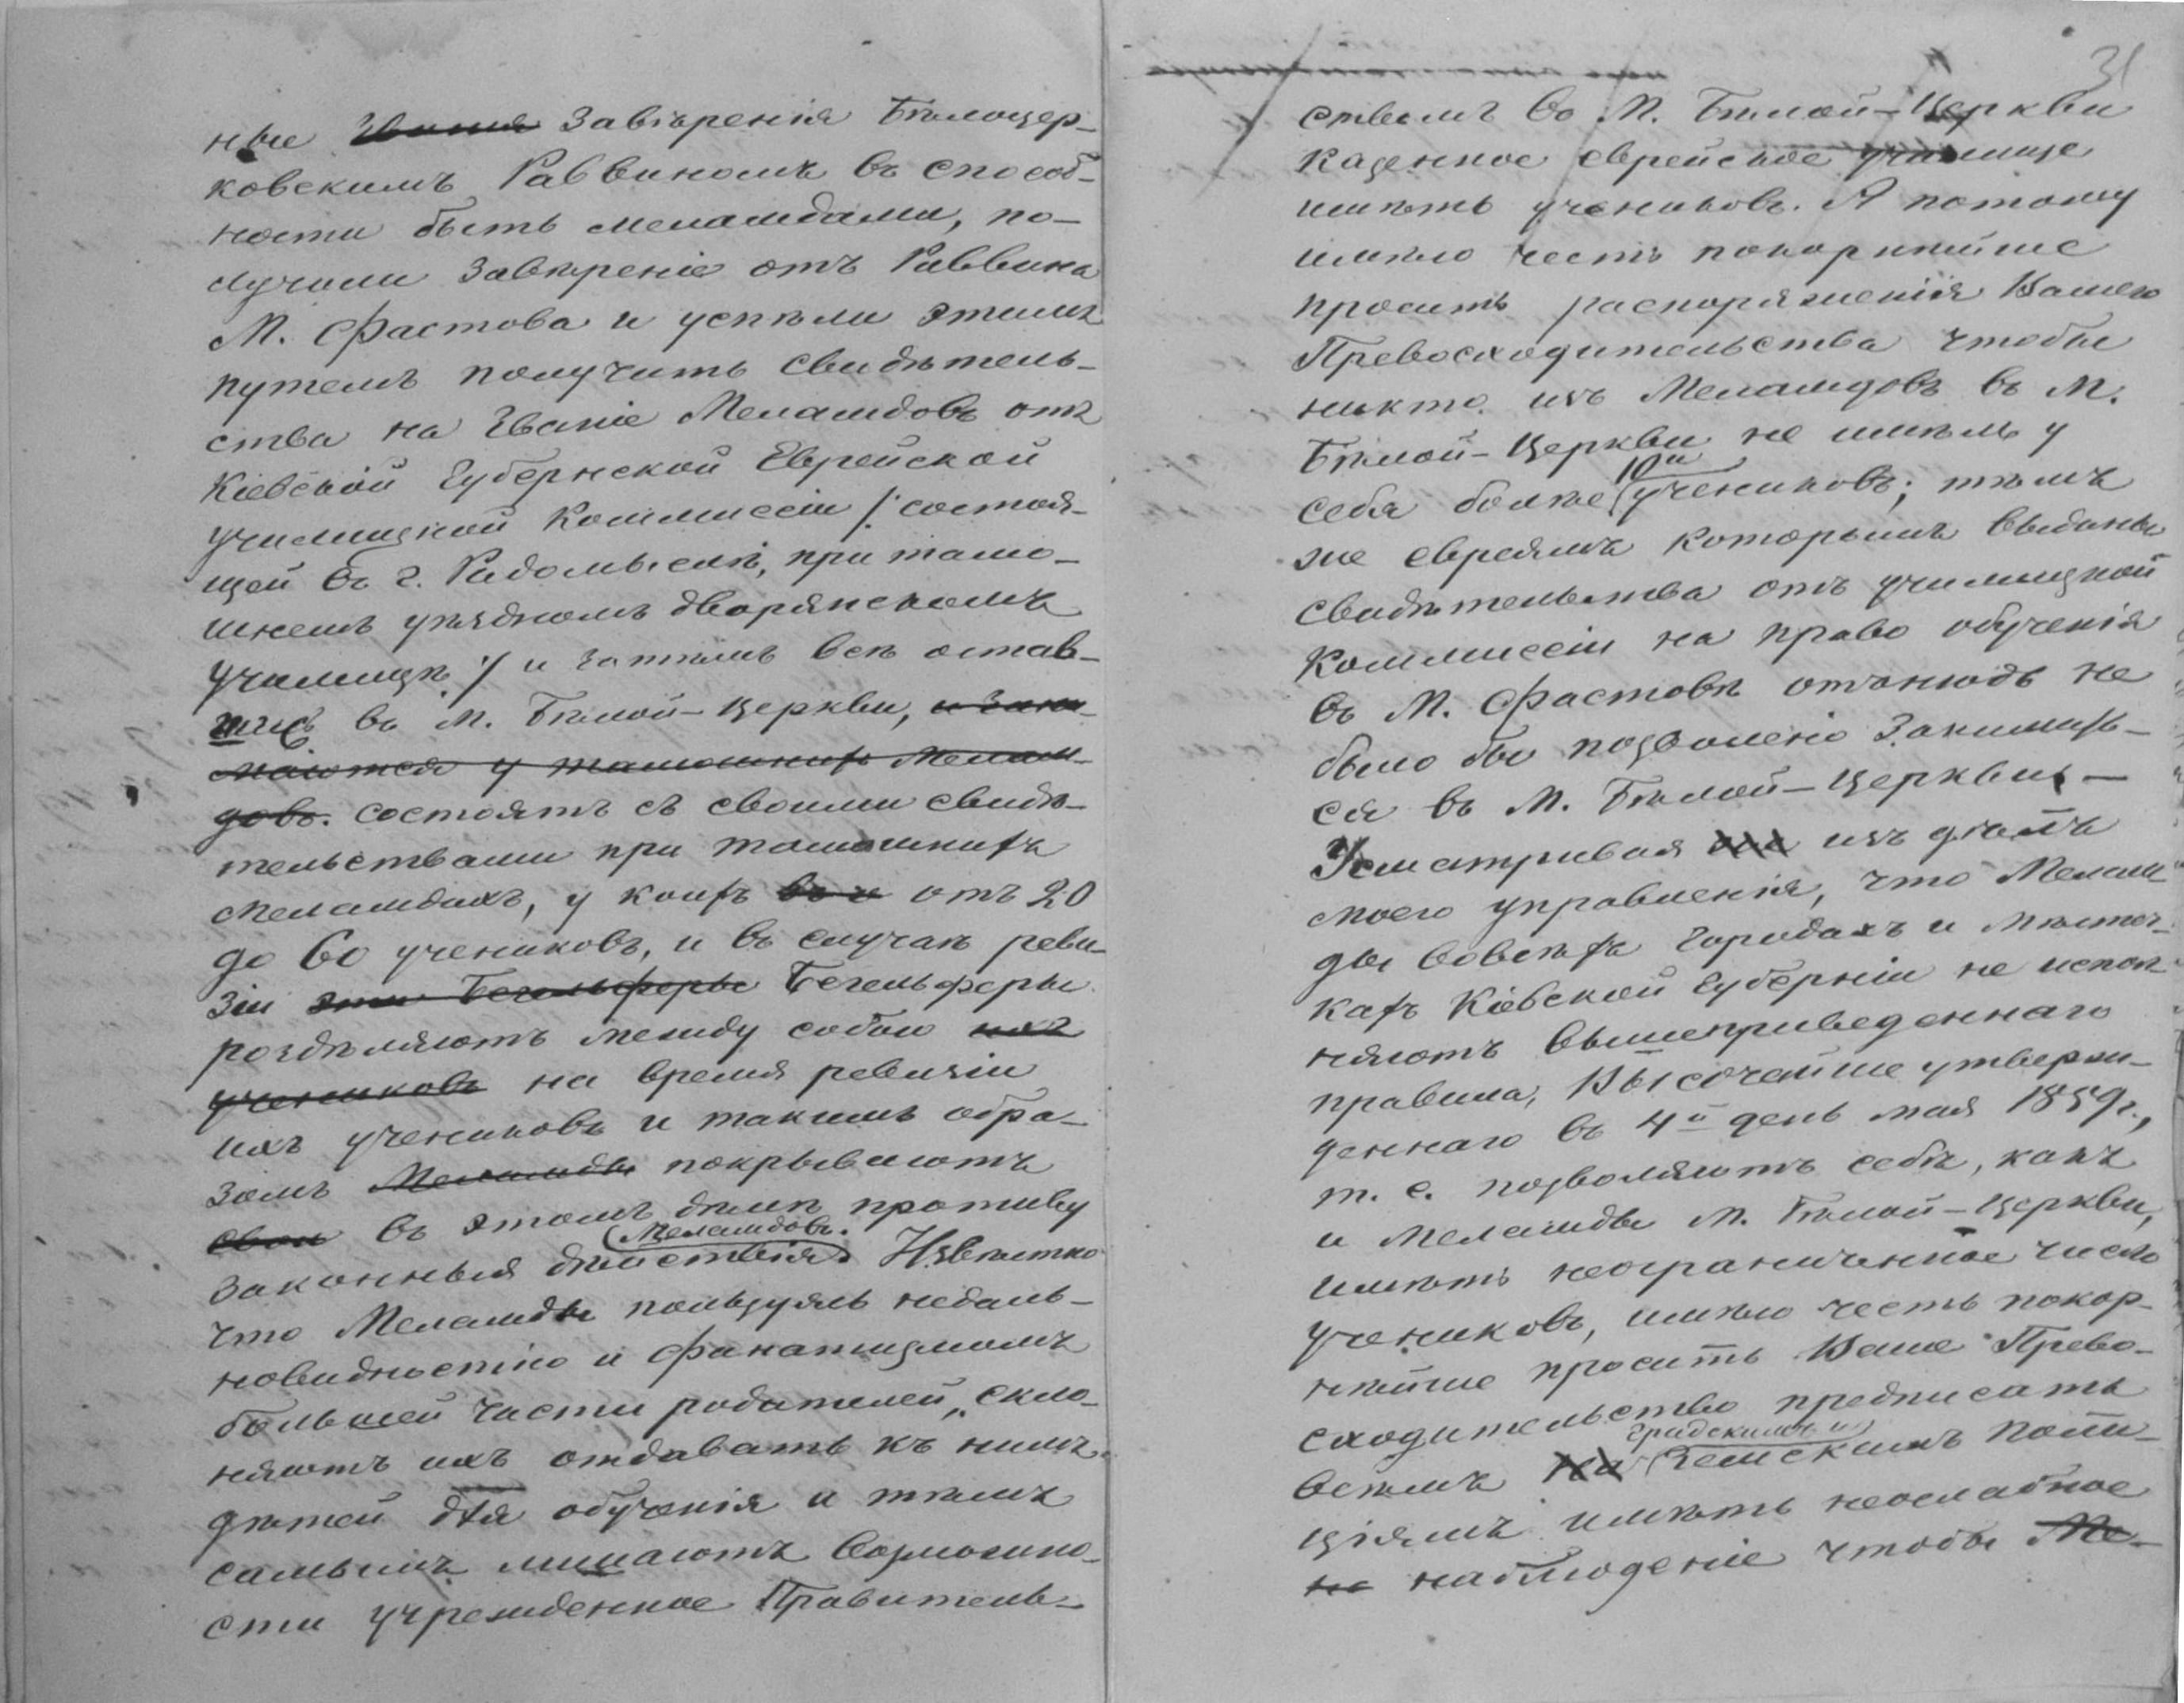 ные званія завѣренія Бѣлоцер-
ковскимъ Раввиномъ въ способ-
ности быть меламдами, по-
лучили завѣреніе отъ Раввина
М. Фастова и успѣли этимъ
путемъ получить свидѣтель-
ства на званіе Меламдовъ отъ
Кіевской Губернской Еврейской
училищной Коммиссіи /: состоя-
щей въ г. Радомыслѣ, при тамо-
шнемъ уѣздномъ дворянскомъ
училищѣ :/ и затѣмъ всѣ остав-
шись въ М. Бѣлой-Церкви, и зани-
маются у тамошнихъ Мелам-
довъ. состоятъ съ своими свидѣ-
тельствами при тамошнихъ
меламдахъ, у коихъ отъ 20
до 60 учениковъ, и въ случаѣ реви-
зіи эти Бегельферы Бегельферы
раздѣляютъ между собою ихъ
учениковъ на время ревизіи
ихъ учениковъ и такимъ обра-
зомъ Меламды покрываютъ
свои въ этомъ дѣлѣ противу
законныя дѣйствія Меламдовъ. Извѣстно
что Меламды пользуясь недаль-
новидностію и фанатизмомъ
большей части родителей, скло-
няютъ ихъ отдавать къ нимъ
дѣтей для обученія и тѣмъ
самымъ лишаютъ возможно-
сти учрежденное Правитель-
31
ствомъ во М. Бѣлой-Церкви
казенное еврейское училище
имѣть учениковъ. А потому
имѣю честь покорнѣйше
просить распоряженія Вашего
Превосходительства чтобы
никто изъ Меламдовъ въ М.
Бѣлой-Церкви не имѣлъ у
себя болѣе 10и учениковъ; тѣмъ
же евреямъ которымъ выданы
свидѣтельства отъ училищной
Коммиссіи на право обученія
въ М. Фастовѣ отнюдь не
было бы позволено заниматъ-
ся въ М. Бѣлой-Церкви. —
Усматривая изъ дѣлъ
моего управленія, что Мелам-
ды вовсѣхъ городахъ и мѣстеч-
кахъ Кіевской Губерніи не испол-
няютъ вышеприведеннаго
правила, Высочайше утверж-
деннаго въ 4й день мая 1859 г.,
т. е. позволяютъ себѣ, какъ
и Меламды М. Бѣлой-Церкви,
имѣть неограниченное число
учениковъ, имѣю честь покор-
нѣйше просить Ваше Прево-
сходительство предписать
всѣмъ градскимъ и Земскимъ поли-
ціямъ имѣть неослабное
не наблюденіе чтобы Ме-